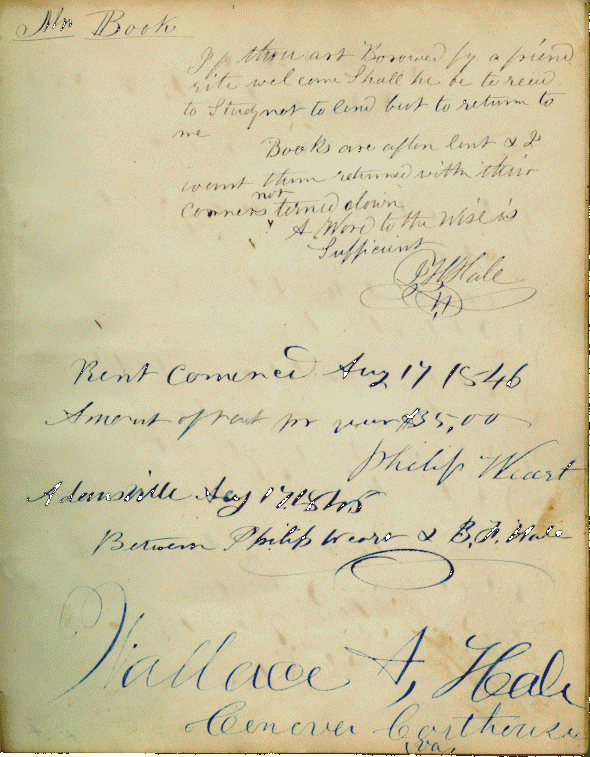 Book
If thou art Borowed by a friend
rite welcome Shall he be to read
to Study not to lend but to return to
me
Books are often lent & I
want them returned with their
not
corners terned down
A Word to the Wise is
Sufficient
Hale
Rent Comenced Aug 17 1846
Amount of rent pr year $35,00
Philip Weart
Adamsville Aug 17
Between Philip Weart & B. H. Hale
Wallace A, Hale
Cenover Corthouse